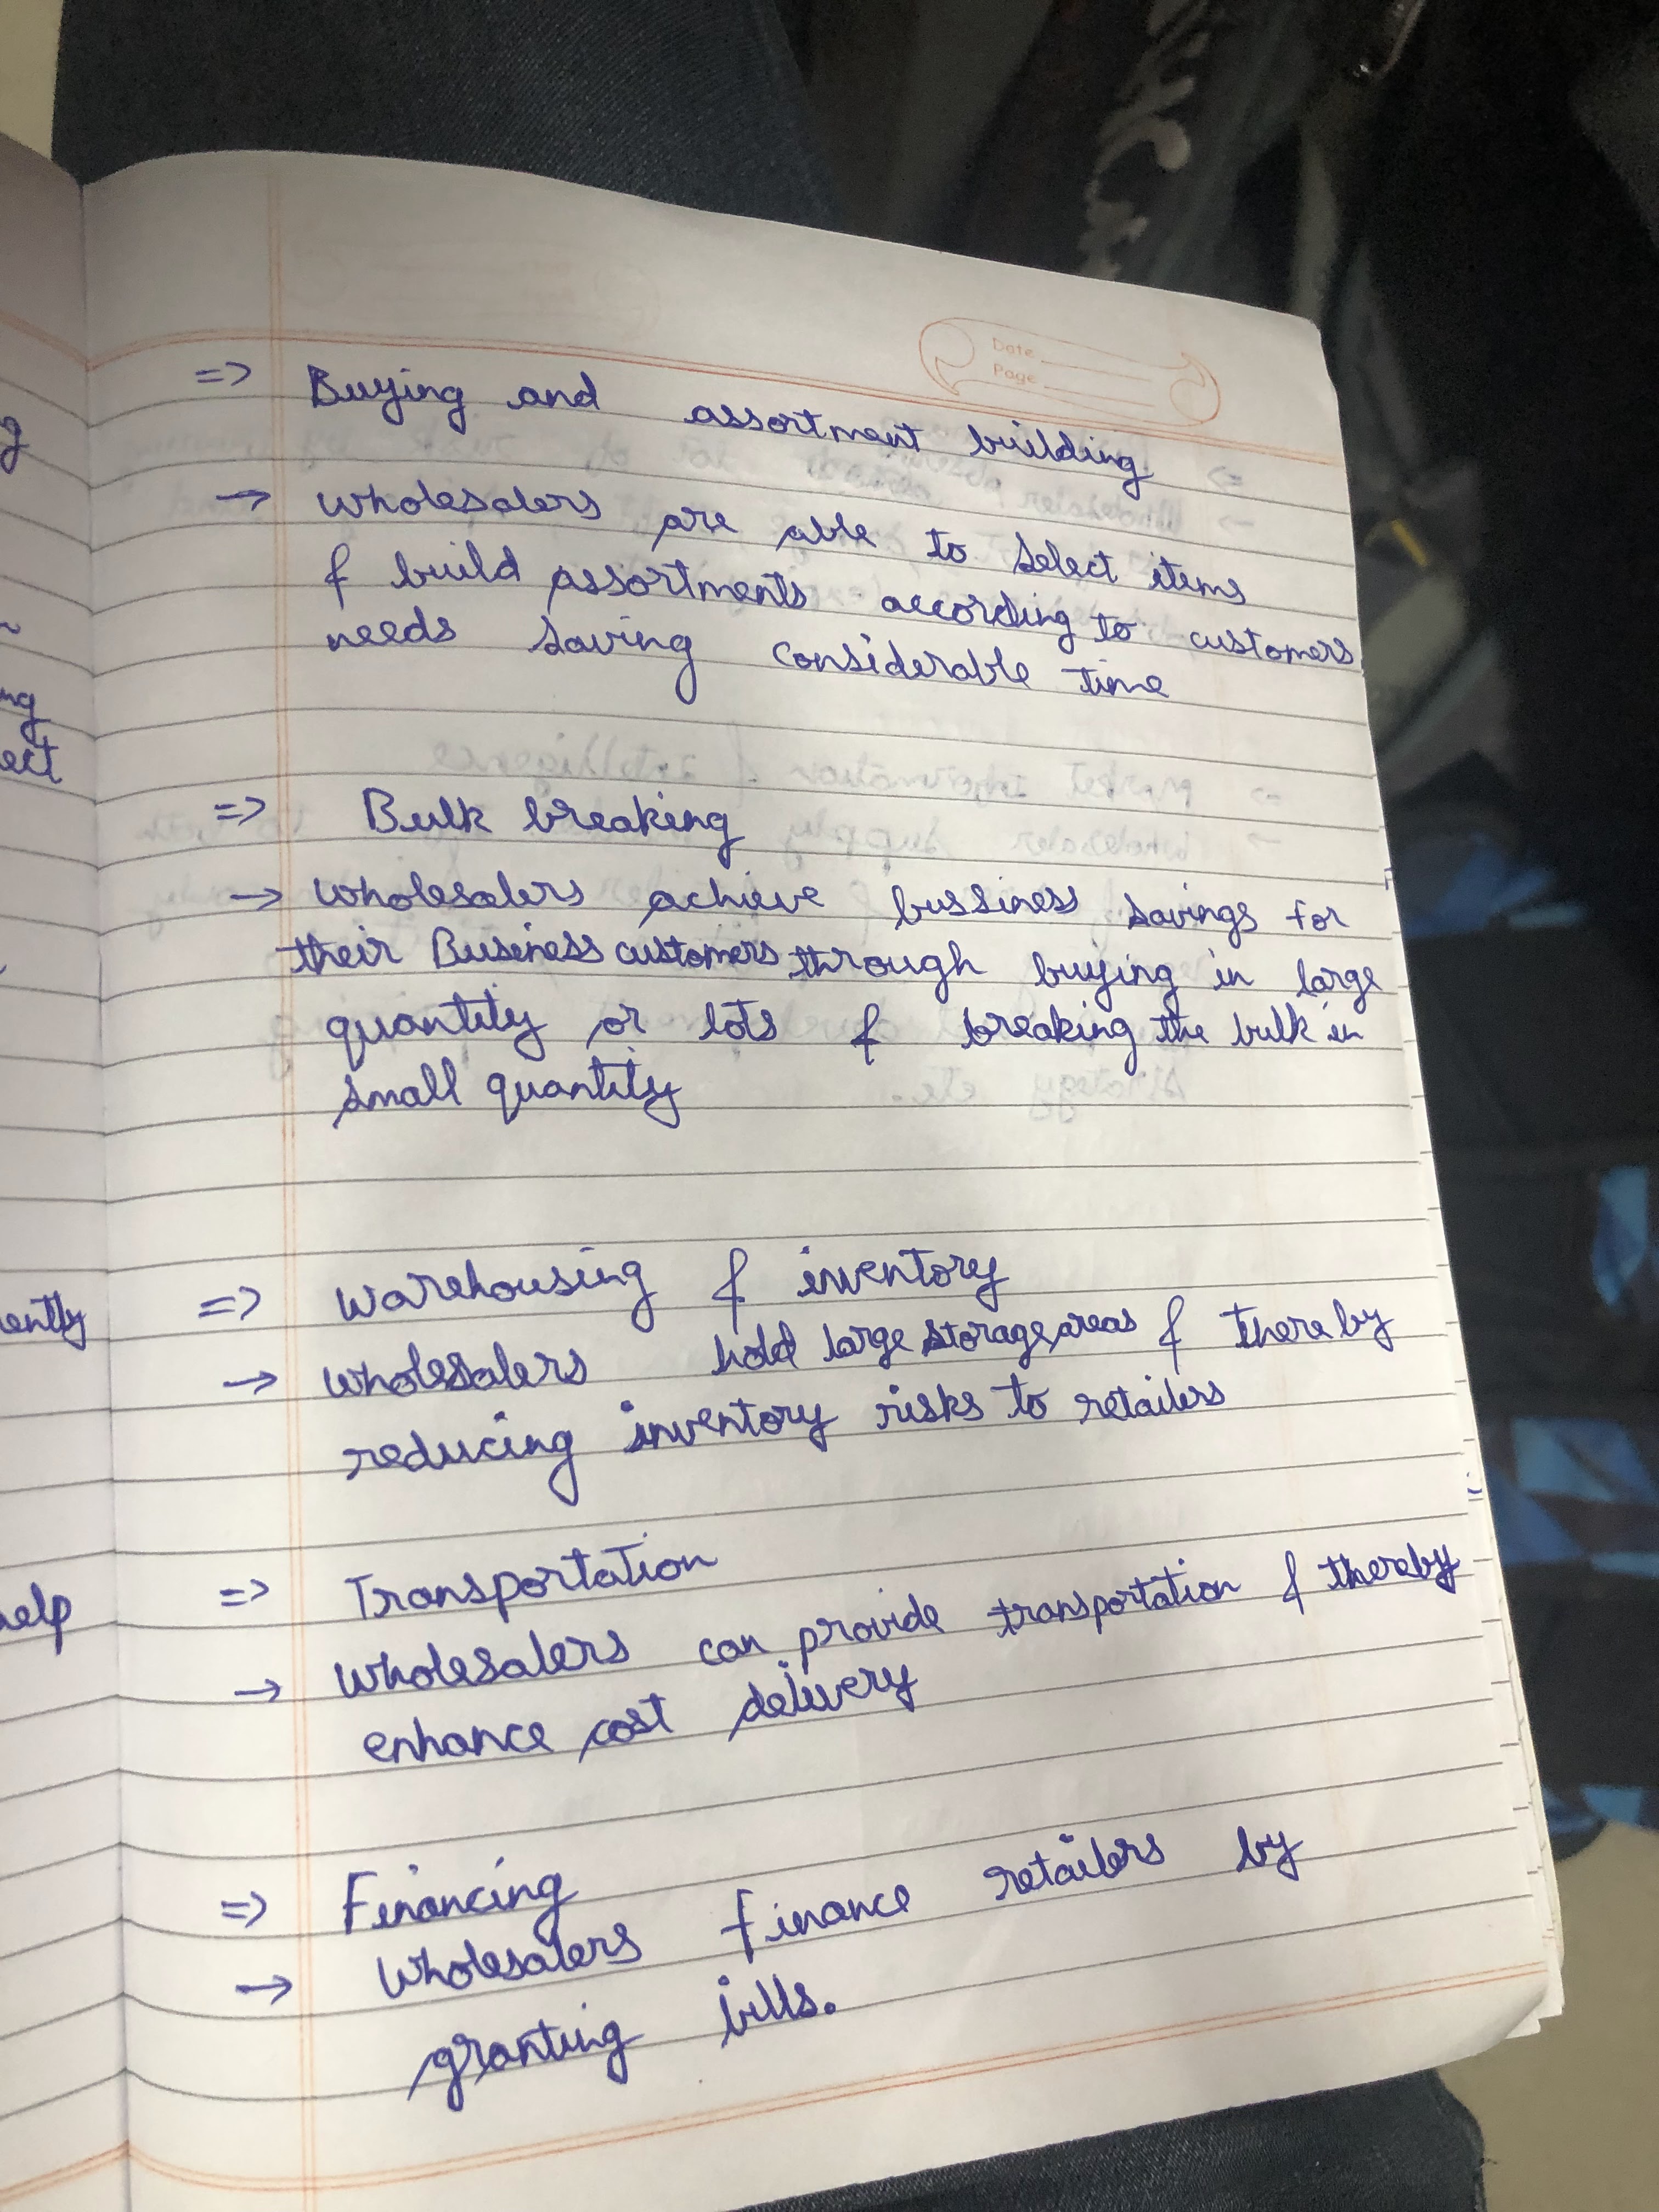 Date
Page
=> Buying and assortment building
→ wholesalers are able to select items
& build assortments according to customers
needs saving considerable time
=> Bulk breaking
→ wholesalers achieve bussiness savings for
their Business customers through buying in large
quantity or lots & breaking the bulk in
small quantity
=> Warehousing & inventory
→ wholesalers hold large storage areas & thereby
reducing inventory risks to retailers
=> Transportation
→ wholesalers can provide transportation & thereby
enhance cost delivery
=> Financing
→ Wholesalers finance retailers by
granting bills.